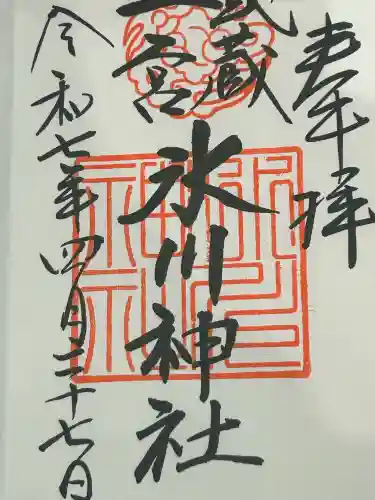 奉拝
武蔵
一宮
氷川神社
令和七年四月二十七日